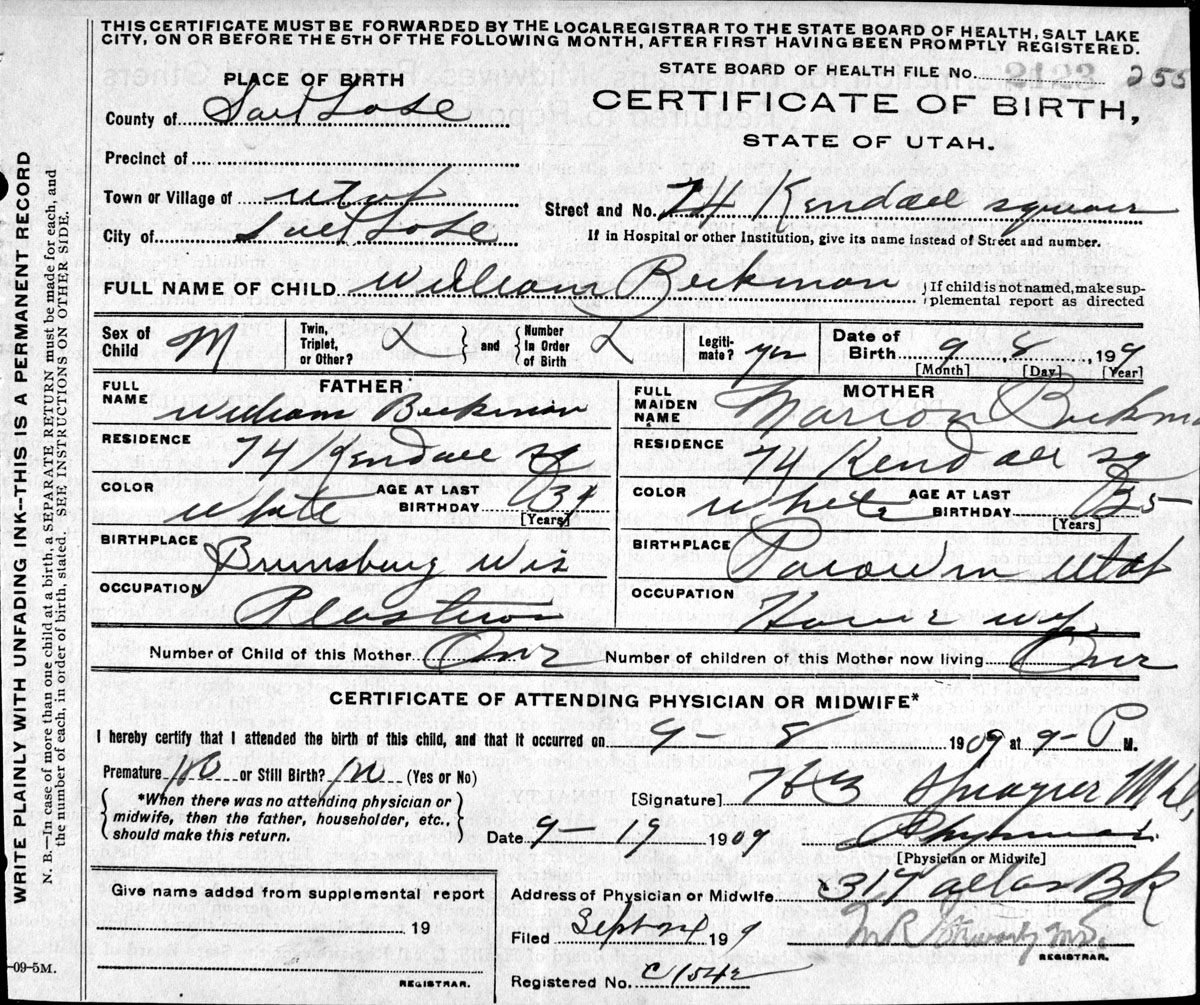 THIS CERTIFICATE MUST BE FORWARDED BY THE LOCAL REGISTRAR TO THE STATE BOARD OF HEALTH, SALT LAKE
CITY, ON OR BEFORE THE 5TH OF THE FOLLOWING MONTH, AFTER FIRST HAVING BEEN PROMPTLY REGISTERED.
STATE BOARD OF HEALTH FILE No. 2123 255
PLACE OF BIRTH
CERTIFICATE OF BIRTH,
STATE OF UTAH.
County of Salt Lake
Precinct of
Town or Village of Utah
Street and No. 74 Kendall Square
City of Salt Lake
If in Hospital or other Institution, give its name instead of Street and number.
FULL NAME OF CHILD William Beckman
If child is not named, make sup-
plemental report as directed
Sex of Child M
Twin, Triplet, or Other? and Number In Order of Birth
Legiti-mate? yes
Date of Birth 9 8, 199
[Month] [Day] [Year]
FATHER
FULL NAME William Beckman
RESIDENCE 74 Kendall sq
COLOR White
AGE AT LAST BIRTHDAY 34
[Years]
BIRTHPLACE Wis
OCCUPATION
MOTHER
FULL MAIDEN NAME Marion Beckm
RESIDENCE 74 Kendall sq
COLOR White
AGE AT LAST BIRTHDAY 35
[Years]
BIRTHPLACE Parowan Utah
OCCUPATION House wf
Number of Child of this Mother One
Number of children of this Mother now living One
CERTIFICATE OF ATTENDING PHYSICIAN OR MIDWIFE*
I hereby certify that I attended the birth of this child, and that it occurred on 9-8 1909 at 9-P M.
Premature No or Still Birth? No (Yes or No)
*When there was no attending physician or
midwife, then the father, householder, etc.,
should make this return.
[Signature]
Date 9-19 1909
Physician
[Physician or Midwife]
Give name added from supplemental report
19
REGISTRAR.
Address of Physician or Midwife 317 Atlas Bk
Filed Sept 199
REGISTRAR.
Registered No. C1542
-09-5M.
WRITE PLAINLY WITH UNFADING INK—THIS IS A PERMANENT RECORD
N. B.—In case of more than one child at a birth, a SEPARATE RETURN must be made for each, and
the number of each, in order of birth, stated. SEE INSTRUCTIONS ON OTHER SIDE.